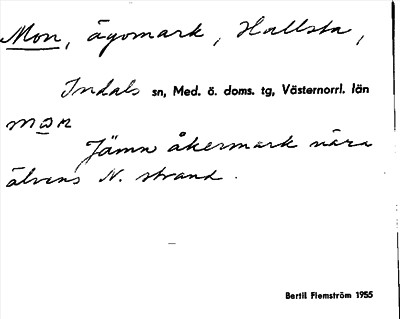 Mon, ägomark, Hallsta,
Indals sn, Med. ö. doms. tg, Västernorrl. län
Jämn åkermark nära
älvens N. strand.
Bertil Flemström 1955